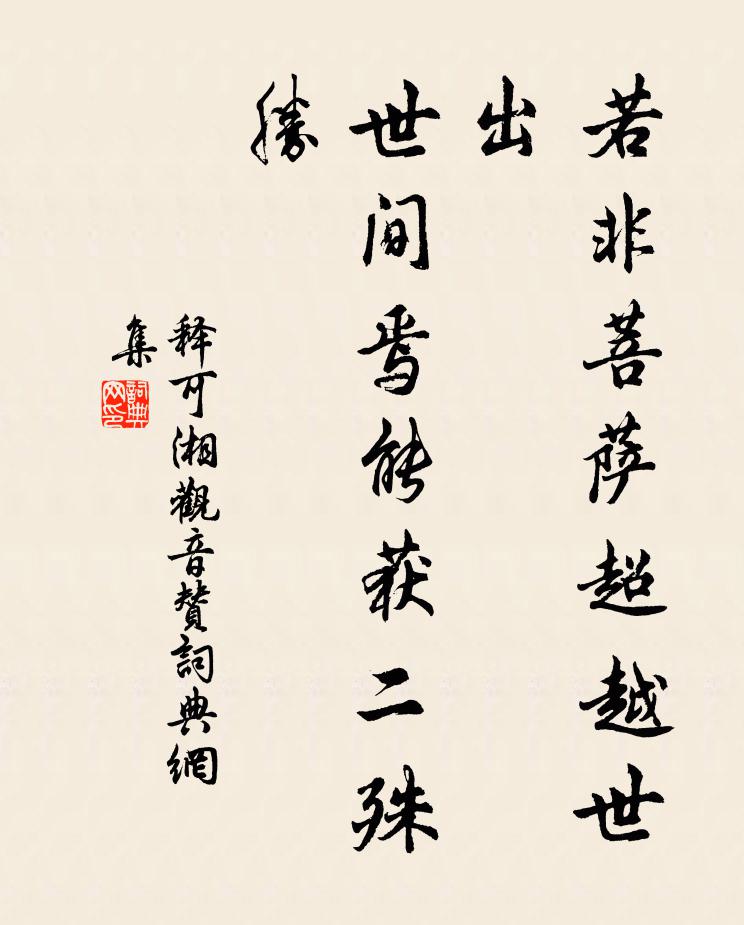 若非菩萨超越世
出
世间焉能获二殊
勝
释可湘觀音贊詞典網
集
詞典
网印